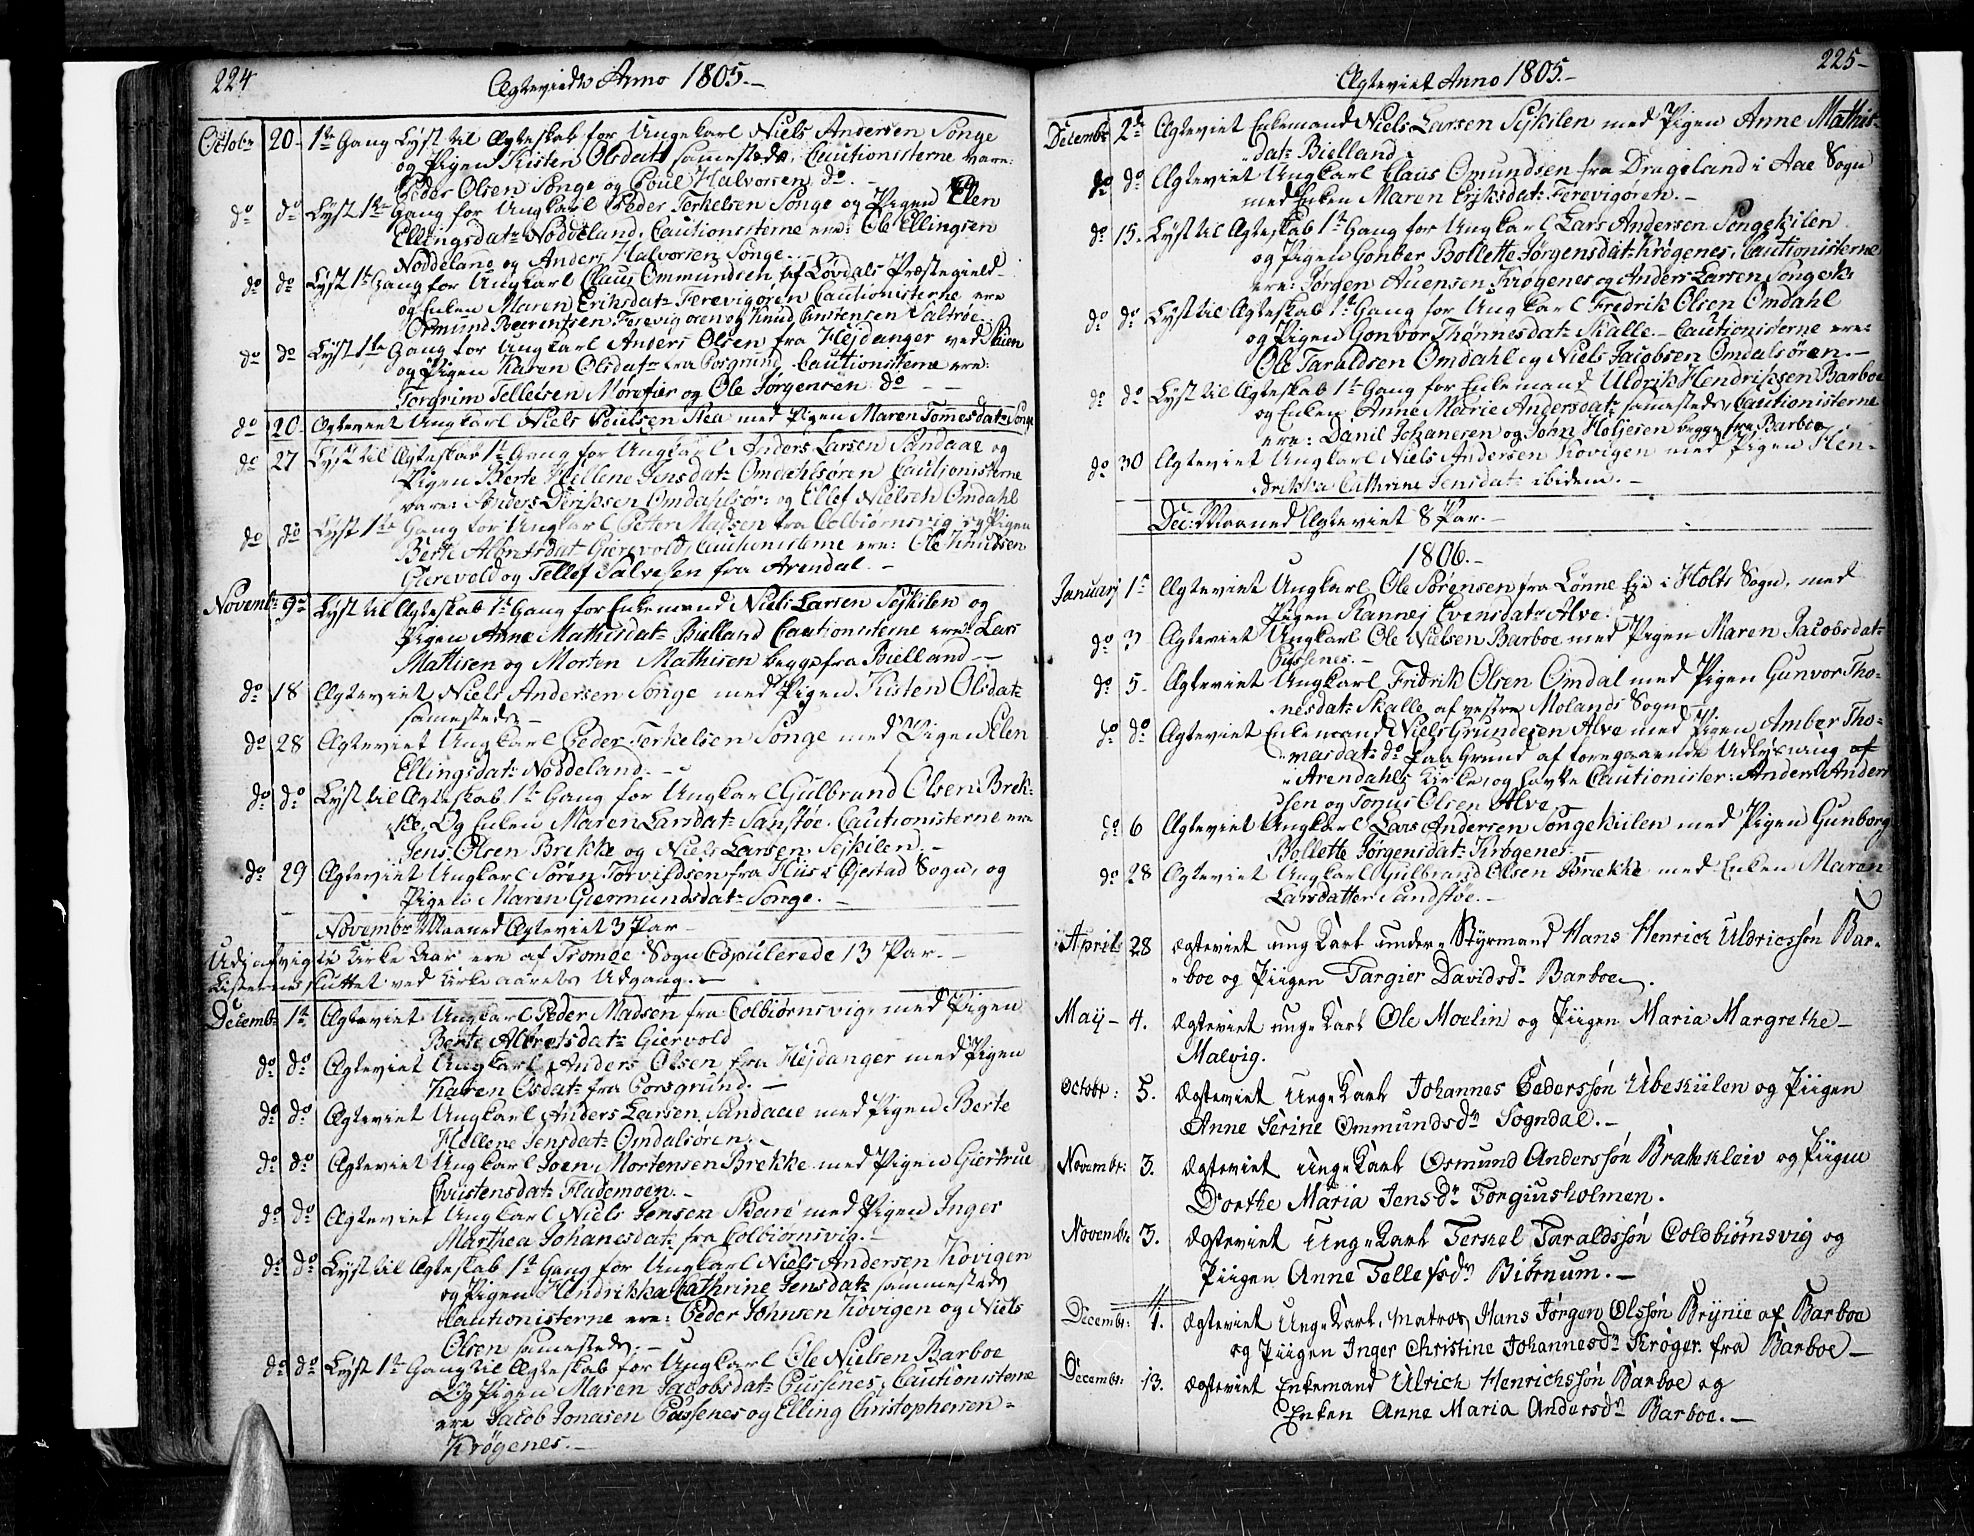 224
Ægteviede Anno 1805.-
Octobr 20. 1te Gang Lyst til Ægteskab for Ungekarl Niels Andersen Songe
og Pigen Kisten Olsdatr samestæds, Cautionisterne vare:
Peder Olsen Songe og Poul Halvorsen do. -
do do Lyst 1te Gang for Ungkarl Peder Terkelsen Songe og Pigen Elen
Ellingsdatr Noddeland. Cautionisterne ere: Ole Ellingsen
Noddeland og Anders Halvorsen Songe.
do do Lyst 1te Gang for Ungkarl Claus Ommundsen af Lovdals Præstegield
og Enken Maren Eriksdatr Ferevigoren Cautionisterne ere
Osmund Beerentsen Ferevigoren og Knud Saltrøe.
do do Lyst 1te Gang for Ungkarl Anders Olsen fra Hejdanger ved Skien
og Pigen Karen Olsdatr fra Porsgrund, Cautionisterne ere:
Torgrim Tellefsen Morefiær og Ole Jørgensen do - -
do 20 Ægteviet Ungkarl Niels Poulsen Stea med Pigen Maren Tomesdatr Songe
do 27 Lyst til Ægteskab 1te Gang for Ungkarl Anders Larsen Sandaae og
Pigen Berte Hellene Jensdatr Omdahlsøren Cautionisterne
vare: Anders Diriksen Omdahlsør: og Ellef Nielsen Omdahl
do do Lyst 1te Gang for Ungkarl Peter Madsen fra Colbiørnsvig og Pigen
Berte Albretsdat Gierevold, Cautionisterne ere: Ole Knudsen
Gierevold og Tellef Salvesen fra Arendal. -
Novemb: 9de Lyst til Ægteskab 1te Gang for Enkemand Niels Larsen Sejkilen og
Pigen Anne Mathisdatr Bielland Cautionisterne ere Lars
Mathisen og Morten Mathisen begge fra Bielland -
do 18 Ægteviet Niels Andersen Songe med Pigen Kisten Olsdatr
samestæds -
do 28 Ægteviet Ungkarl Peder Terkelsen Songe med Pigen Elen
Ellingsdatr Noddeland. -
do do Lyst til Ægteskab 1te Gang for Ungkarl Gulbrand Olsen Brek-
ke, Og Enken Maren Larsdatr Sanstøe. Cautionisterne ere
Jens Olsen Brekke og Niels Larsen Sejkilen. -
do 29 Ægteviet Ungkarl Søren Torvildsen fra Hiis i Øjestad Sogn, og
Pigen Maren Giermundsdatr Songe. -
Novembr Maaned Ægteviet 3 Par -
Udi afvigte Kirke Aar ere af Tromøe Sogn Copulerede 13 Par. -
Listerne sluttet ved Kirkeaarets Udgang. -
Decemb: 1te Ægteviet Ungkarl Peder Madsen fra Colbiørnsvig, med Pigen
Berte Albretsdatr Giervold
do do Ægteviet Ungkarl Anders Olsen fra Hejdanger med Pigen
Karen Osdatr fra Porsgrund. -
do do Ægteviet Ungkarl Anders Larsen Sandaae med Pigen Berte
Hellene Jensdatr Omdalsøren. -
do do Ægteviet Ungkarl Joen Mortensen Brekke med Pigen Giertrue
Cristensdatr Flademoen. -
do do Ægteviet Ungkarl Niels Jensen Skare med Pigen Inger
Marthea Johanesdatr fra Colbiørnsvig. -
do do Lyst til Ægteskab 1te Gang for Ungkarl Niels Andersen Hovigen
og Pigen Hendrikka Cathrine Jensdatr sammesteds
Cautionisterne ere: Peder Johnsen Hovigen og Niels
Olsen sammesteds. -
do do Lyst 1te Gang til Ægteskab for Ungkarl Ole Nielsen Barboe
Og Pigen Maren Jacobsdatr Pussenes, Cautionisterne
ere Jacob Jonasen Pussenes og Elling Christophersen -
Krøgenes. -
225 -
Ægteviet Anno 1805. -
Decembr 2de Ægteviet Enkemand Niels Larsen Sejkilen med Pigen Anne Mathis-
datr Bielland.
do do Ægteviet Ungkarl Claus Omundsen fra Drageland i Aae Sogn
med Enken Maren Eriksdatr Ferevigoren. -
do 15. Lyst til Ægteskab 1te Gang for Ungkarl Lars Andersen Songekilen
og Pigen Gonber Bollette Jørgensdatr Krøgenes, Cautionisterne
ere: Jørgen Auensen Krøgenes og Anders Larsen Songek:
do do Lyst til Ægteskab 1te Gang for Ungkarl Fredrik Olsen Omdahl
og Pigen Gonvor Thønnesdatr Skalle. - Cautionisterne ere:
Ole Taraldsen Omdahl og Niels Jacobsen Omdalsøren. -
do do Lyst til Ægteskab 1te Gang for Enkemand Uldrik Hendriksen Barboe
og Enken Anne Marie Andersdatr sammesteds, Cautionisterne
ere: Danil Johanesen og John Holjesen begge fra Barboe
do 30 Ægteviet Ungkarl Niels Andersen Hovigen med Pigen Hen-
drikka Cathrine Jensdatr ibidem. -
Dec: Maaned Ægteviet 8 Par. -
1806. -
Januarj 1te Ægteviet Ungkarl Ole Sørensen fra Lønne Eje i Holts Sogn, med
Pigen Rannej Evensdatr Alve.
do 3 Ægteviet Ungkarl Ole Nielsen Barboe med Pigen Maren Jacobsdatr
Pussenes. -
do 5 - Ægteviet Ungkarl Fridrik Olsen Omdal med Pigen Gunvor Tho-
nesdatr Skalle af vestre Molands Sogn -
do do Ægteviet Enkemand Niels Grundesen Alve med Pigen Amber Tho-
masdatr do paa Grund af foregaaende Udlysning af
i Arendahls Kirke, og havte Cautionister: Anders Ander-
sen og Tonus Olsen Alve. -
do 6 Ægteviet Ungkarl Lars Andersen Songekiilen med Pigen Gunborg
Bollette Jørgensdatr Krøgenes. -
do 28 Ægteviet Ungkarl Gulbrand Olsen Brække med Enken Maren
Larsdatter Sandstøe. -
April 28 Ægteviet ung Karl under-Styrmand Hans Henrich Uldricssøn Bar-
boe og Piigen Targier Davidsdr Barboe.
Maÿ - 4. Ægteviet unge Karl Ole Moelin og Piigen Maria Margrethe -
Malvig.
Octobr: 5. Ægteviet Unge Karl Johannes Pederssøn Ubekiilen og Piigen
Anne Serine Ommundsdr Sogndal. -
Novembr: 3. Ægteviet Unge Karl Osmund Anderssøn Bratteklev og Piigen
Dorthe Maria Jensdr Torgiusholmen.
Novembr 3. Ægteviet Unge Karl Terkel Taraldssøn Coldbiørnsvig og
Piigen Anne Tellefsdr Biørnum. -
Decembr: 4. Ægteviet Unge Karl, Matros Hans Jørgen Olssøn Brÿnie af Barboe
og Piigen Inger Christine Johannesdr Krøger fra Barboe -
Decembr: 13. Ægteviet Enkemand Ulrich Henrichssøn Barboe og
Enken Anne Maria Andersdr Barboe. -